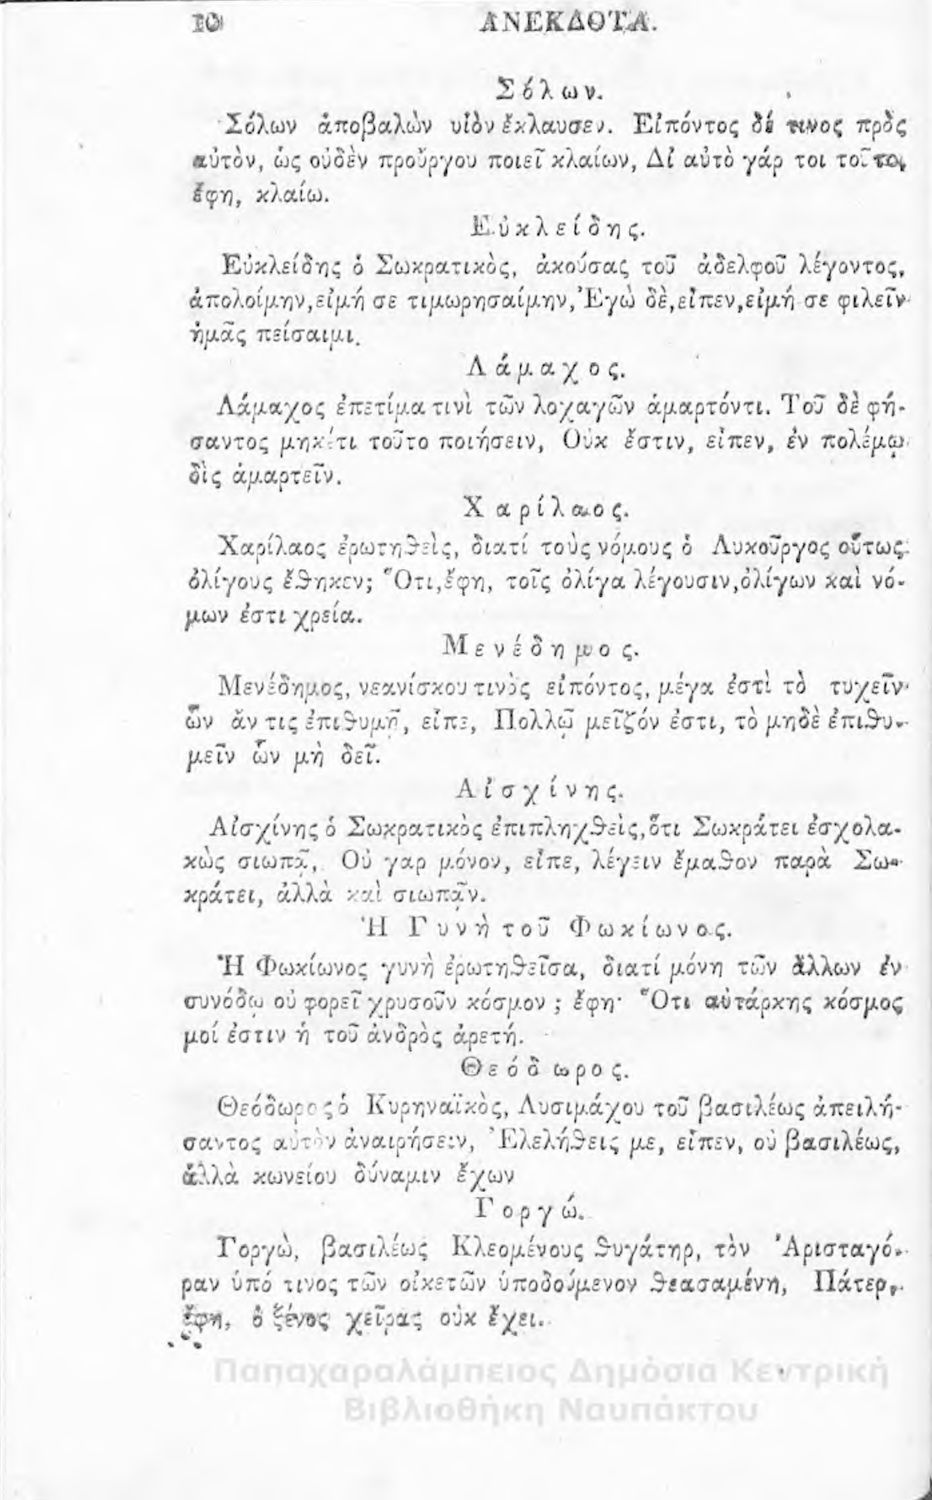 10 ΑΝΕΚΔΟΤΑ.
Σόλων.
Σόλων ἀποβαλὼν υἱὸν ἔκλαυσεν. Εἰπόντος δέ τινος πρὸς
αὐτὸν, ὡς οὐδὲν προὔργου ποιεῖ κλαίων, Δἰ αὐτὸ γάρ τοι τοῦτο,
ἔφη, κλαίω.
Εὐκλείδης.
Εὐκλείδης ὁ Σωκρατικὸς, ἀκούσας τοῦ ἀδελφοῦ λέγοντος,
ἀπολοίμην, εἰμή σε τιμωρησαίμην, Ἐγὼ δὲ, εἶπεν, εἰμή σε φιλεῖν
ἡμᾶς πείσαιμι.
Λάμαχος.
Λάμαχος ἐπετίμα τινὶ τῶν λοχαγῶν ἁμαρτόντι. Τοῦ δὲ φή-
σαντος μηκέτι τοῦτο ποιήσειν, Οὐκ ἔστιν, εἶπεν, ἐν πολέμῳ
δὶς ἁμαρτεῖν.
Χαρίλαος.
Χαρίλαος ἐρωτηθεὶς, διατί τοὺς νόμους ὁ Λυκοῦργος οὕτως
ὀλίγους ἔθηκεν; Ὅτι, ἔφη, τοῖς ὀλίγα λέγουσιν, ὀλίγων καὶ νό-
μων ἐστι χρεία.
Μενέδημος.
Μενέδημος, νεανίσκου τινὸς εἰπόντος, μέγα ἐστὶ τὸ τυχεῖν
ὧν ἄν τις ἐπιθυμῇ, εἶπε, Πολλῷ μεῖζόν ἐστι, τὸ μηδὲ ἐπιθυ-
μεῖν ὧν μὴ δεῖ.
Αἰσχίνης.
Αἰσχίνης ὁ Σωκρατικὸς ἐπιπληχθεὶς, ὅτι Σωκράτει ἐσχολα-
κὼς σιωπᾷ, Οὐ γαρ μόνον, εἶπε, λέγειν ἔμαθον παρὰ Σω-
κράτει, ἀλλὰ καὶ σιωπᾷν.
Ἡ Γυνὴ τοῦ Φωκίωνος.
Ἡ Φωκίωνος γυνὴ ἐρωτηθεῖσα, διατί μόνη τῶν ἄλλων ἐν
συνόδῳ οὐ φορεῖ χρυσοῦν κόσμον ; ἔφη· Ὅτι αὐτάρκης κόσμος
μοί ἐστιν ἡ τοῦ ἀνδρὸς ἀρετή.
Θεόδωρος.
Θεόδωρος ὁ Κυρηναϊκὸς, Λυσιμάχου τοῦ βασιλέως ἀπειλή-
σαντος αὐτὸν ἀναιρήσειν, Ἐλελήθεις με, εἶπεν, οὐ βασιλέως,
ἀλλὰ κωνείου δύναμιν ἔχων
Γοργώ.
Γοργὼ, βασιλέως Κλεομένους θυγάτηρ, τὸν Ἀρισταγό-
ραν ὑπό τινος τῶν οἰκετῶν ὑποδούμενον θεασαμένη, Πάτερ,
ἔφη, ὁ ξένος χεῖρας οὐκ ἔχει.
Παπαχαραλάμπειος Δημόσια Κεντρική
Βιβλιοθήκη Ναυπάκτου